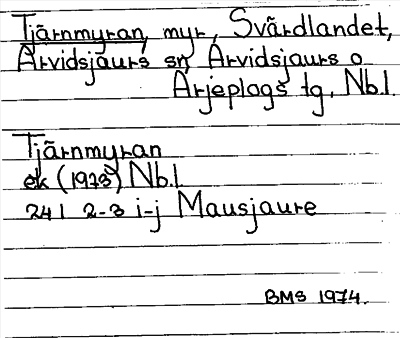 Tjärnmyran, myr, Svärdlandet,
Arvidsjaurs sn, Arvidsjaurs o
Arjeplogs tg, Nb.l.
Tjärnmyran
ek (1973) Nb.l
24 I 2-3 i-j Mausjaure
BMS 1974.